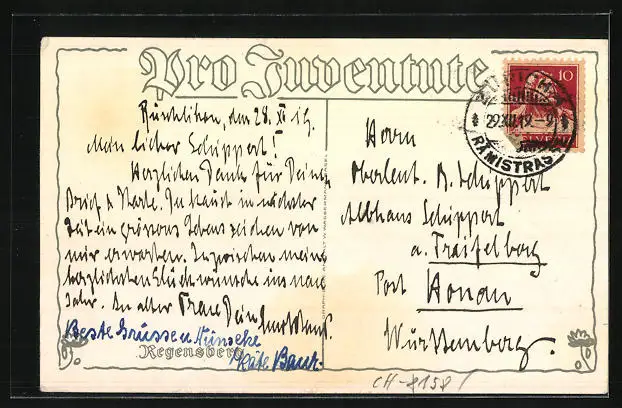 Pro Juventute
Rüschlikon, den 28. XII 19.
Mein lieber Schippert!
Herzlichen Dank für Deinen
Brief & Karte. Du hast in nächster
Zeit ein grösseres Lebenszeichen von
mir zu erwarten. Inzwischen meine
herzlichsten Glückwünsche ins neue
Jahr. In alter Treue Dein
Beste Grüsse u. Wünsche
Käte Baur.
Regensberg
10
HELVETIA
29.XII.19.-9
RÄMISTRASSE
Herrn
Oberleut. B. Schippert
Albhaus Schippert
a. Traifelberg
Post Honau
Württemberg.
CH-8158/